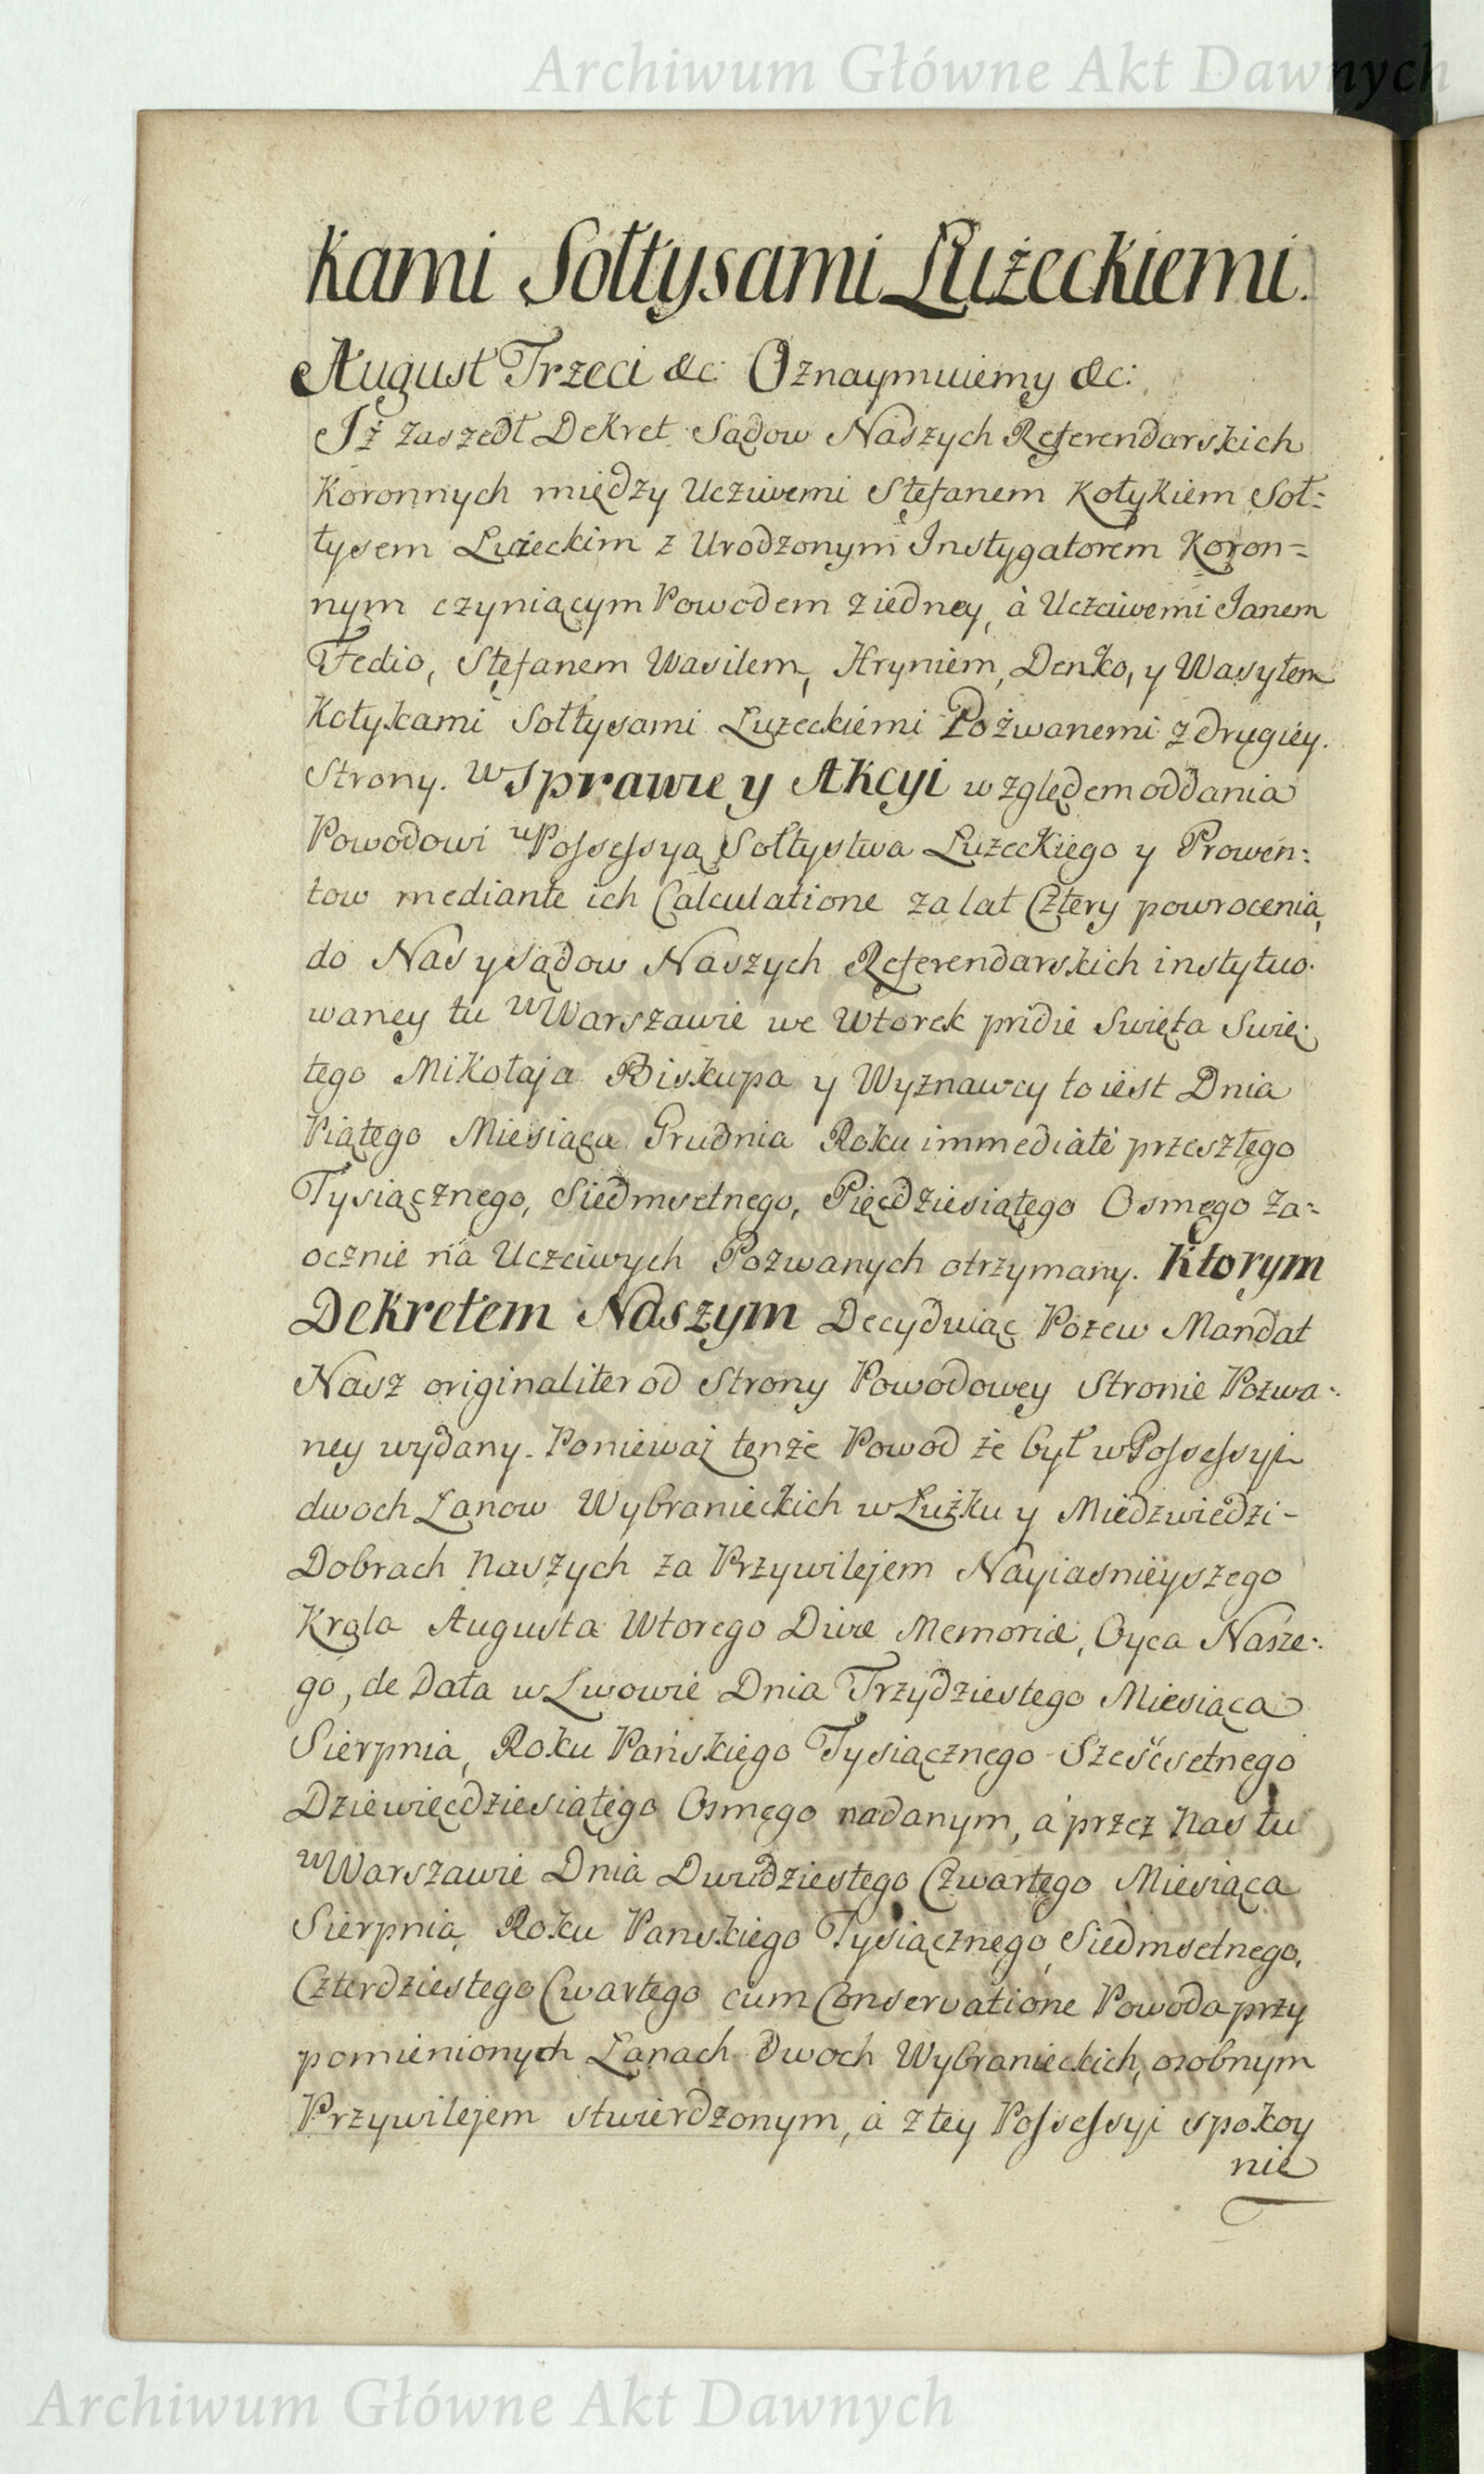 Archiwum Główne Akt Dawnych
Kami Sołtysami Łużeckiemi.
August Trzeci &c: Oznaymuiemy &c:
Iż zaszedł Dekret Sądow Naszych Referendarskich
Koronnych między Uczciwemi Stefanem Kotykiem Soł=
tysem Łużeckim z Urodzonym Instygatorem Koron=
nym czyniącym Powodem ziedney, à Uczciwemi Janem
Fedio, Stefanem Wasilem, Hryniem, Denko, y Wasylem
Kotykami Sołtysami Łuzeckiemi Pozwanemi z drugiey.
Strony. w Sprawie y Akcyi względem oddania
Powodowi w Possessyą Sołtystwa Łuzeckiego y Prowen:
tow mediante ich Calculatione za lat Cztery powrocenia,
do Nas y Sądow Naszych Referendarskich instytuo.
waney tu w Warszawie we Wtorek pridie Swięta Swię:
tego Mikołaja Biskupa y Wyznawcy to iest Dnia
Piątego Miesiąca Grudnia Roku immediate przeszłego
Tysiącznego, Siedmsetnego, Pięcdziesiątego Osmego za=
ocznie na Uczciwych Pozwanych otrzymany. Ktorym
Dekretem Naszym Decyduiąc Pozew Mandat
Nasz originaliter od Strony Powodowey Stronie Pozwa=
ney wydany. Ponieważ tenże Powod że był w Possessyi
dwoch Łanow Wybranieckich w Łużku y Miedzwiedzi-
Dobrach Naszych za Przywilejem Nayiasnieyszego
Krola Augusta Wtorego Divæ Memoriæ, Oyca Nasze:
go, de Data w Lwowie Dnia Trzydziestego Miesiąca
Sierpnia, Roku Pańskiego Tysiącznego Sześćsetnego
Dziewięcdziesiątego Osmego nadanym, à przez Nas tu
w Warszawie Dnia Dwudziestego Czwartego Miesiąca
Sierpnia, Roku Panskiego Tysiącznego, Siedmsetnego,
Czterdziestego Cwartego cum Conservatione Powoda przy
pomienionych Łanach Dwoch Wybranieckich, osobnym
Przywilejem stwierdzonym, à z tey Possessyi spokoy
nie
Archiwum Główne Akt Dawnych